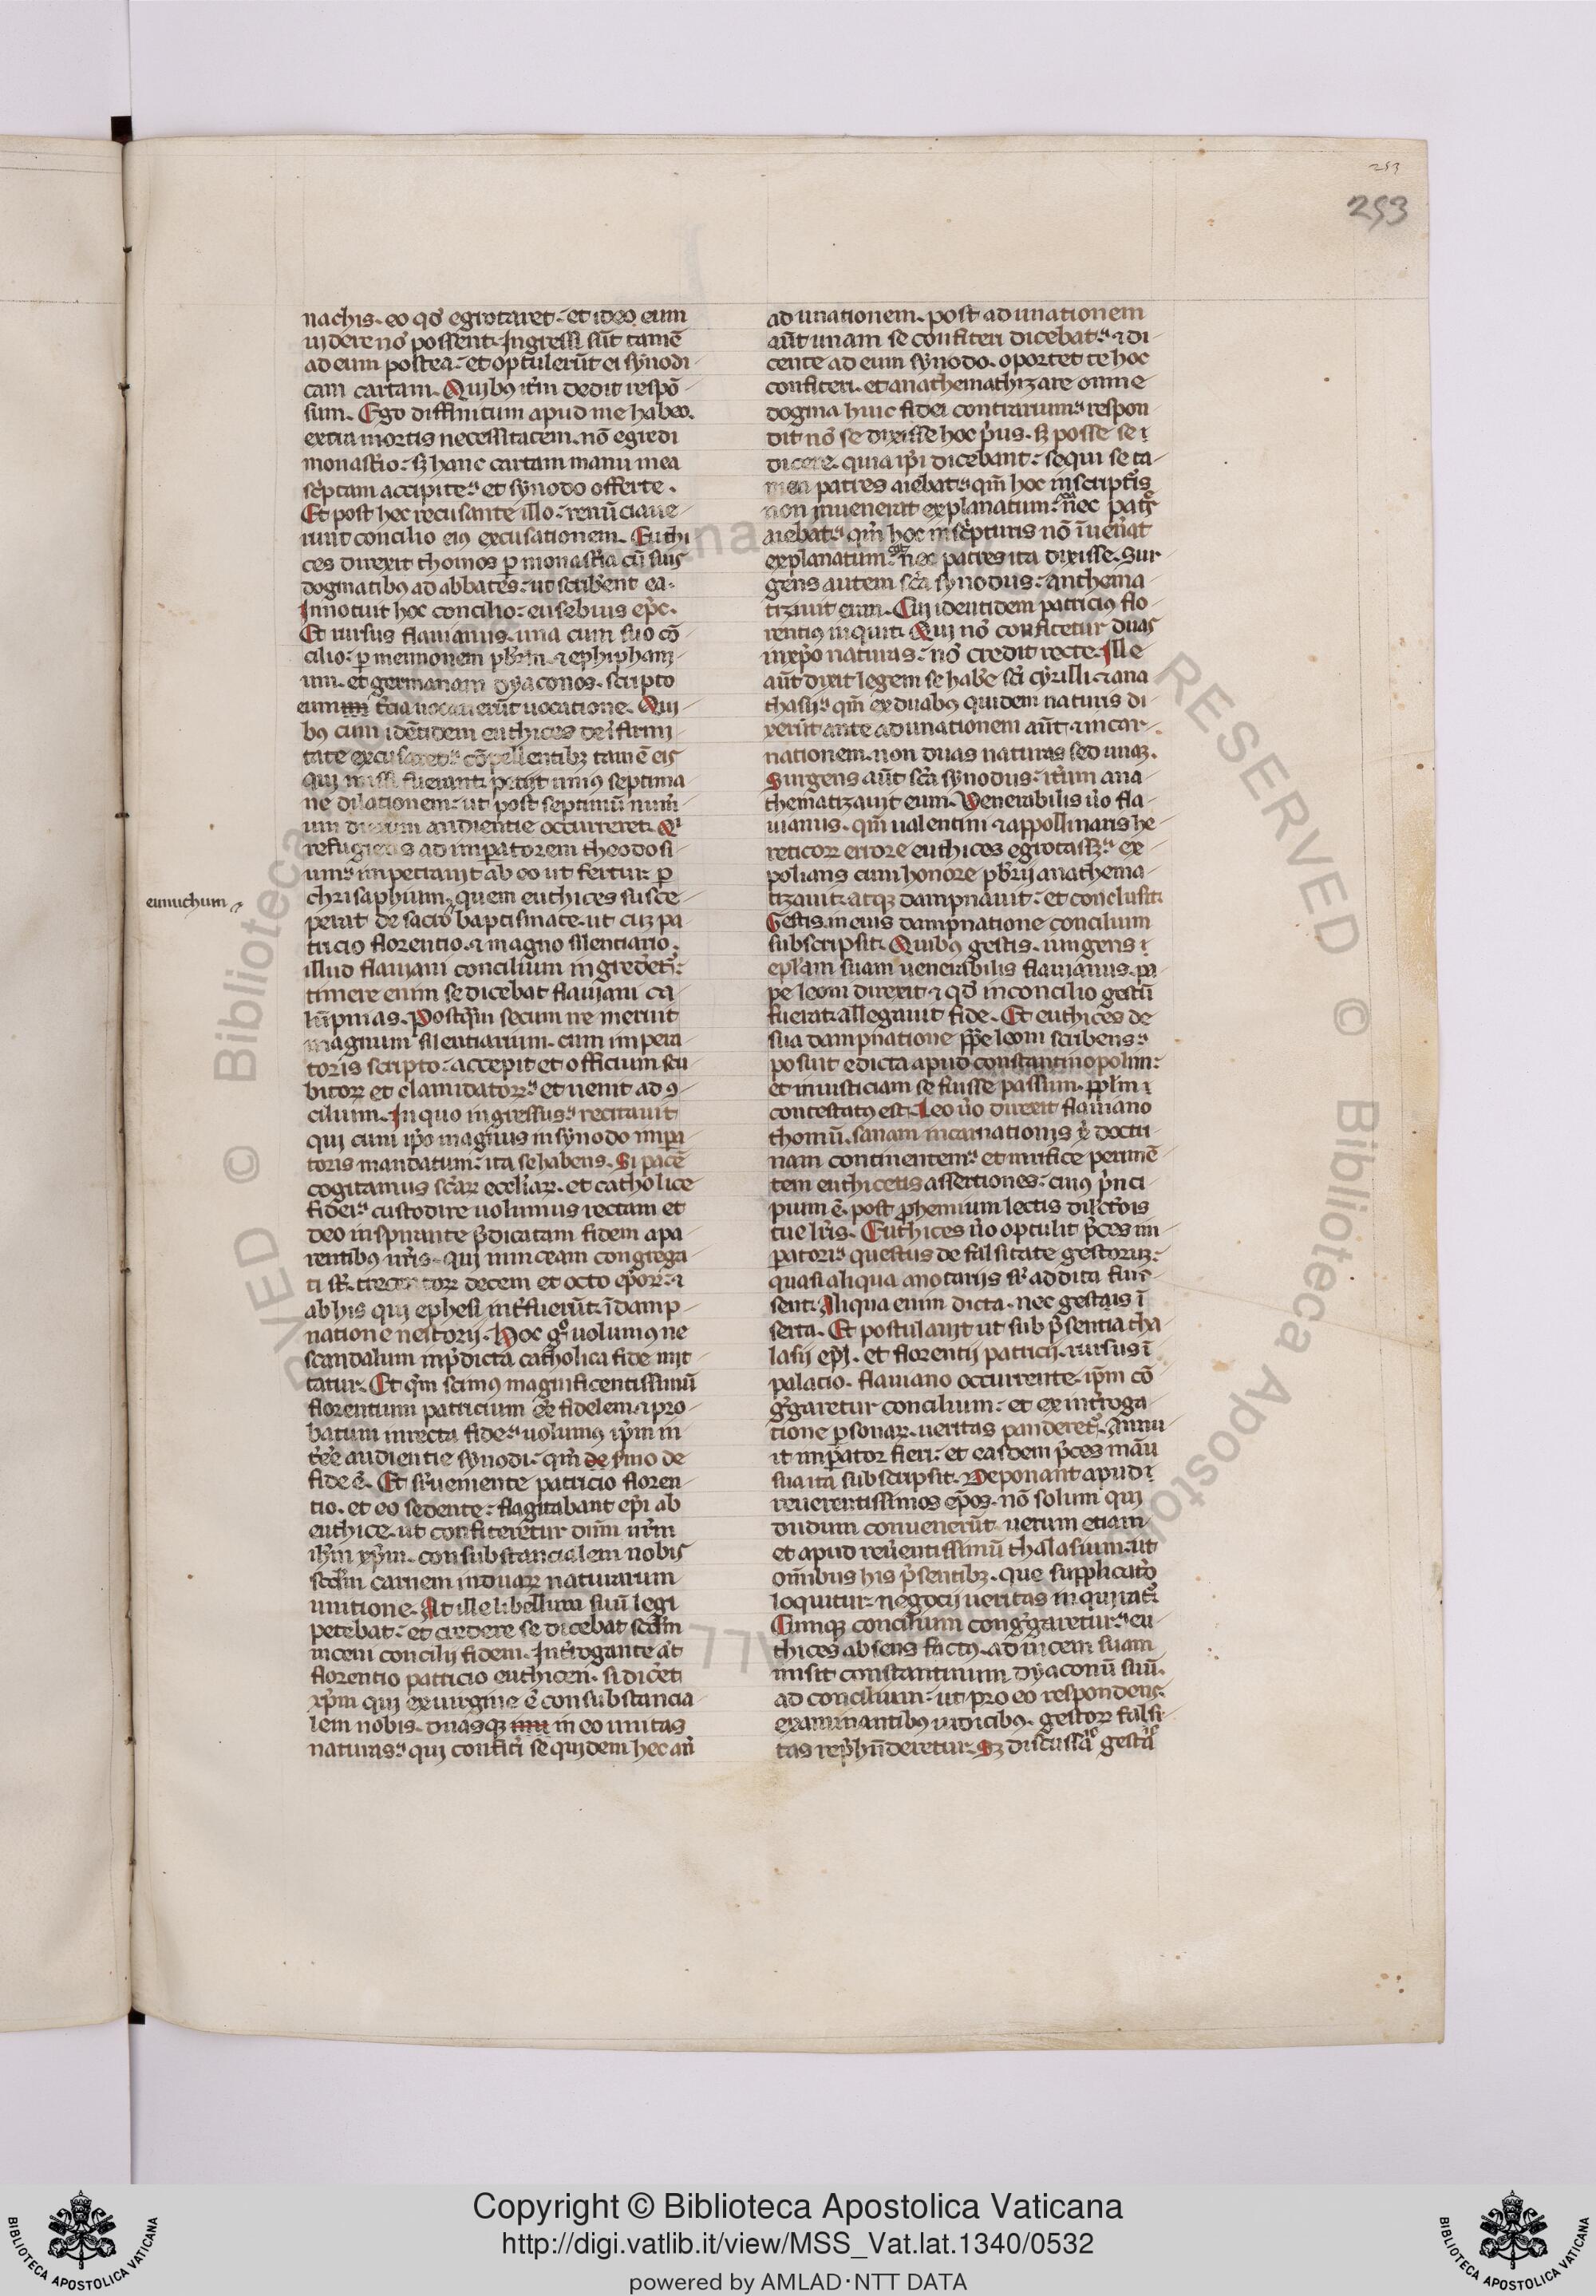 253
253
nachis. eo qđ egrotaret. et ideo eum
uidere nō possent. Ingressi sūt tamē
ad eum postea. et optulerūt ei synodi-
cam cartam. Quibꝰ it̾m dedit respō-
sum. Ego diffinitum apud me habeo.
extra mortis necessitatem. nō egredi
monast̾io. sꝫ hanc cartam manu mea
sc̾ptam accipite. et synodo offerte.
Et post hec recusante illo. renūciaue-
runt concilio eiꝰ excusationem. Euthi
ces direxit thomos ꝑ monast̾ia cū suis
dogmatibꝰ ad abbates. ut scriberent ea.
Innotuit hoc concilio. eusebius ep̄c.
Et rursus flauianus. una cum suo cō-
cilio. ꝑ memnonem pb̄r̄m. ⁊ ephipham-
um. et germanam dyaconos. scripto
eum t̾cia uocauerūt uocatione. Qui
bꝰ cum idētidem euthices de ifirmi-
tate excusaret. cōpellentibꝫ tamē eis
qui missi fuerant. petijt uniꝰ septima-
ne dilationem. ut post septimū num̄
um dierum audientie occurreret. Qi
refugiens ad imperatorem theodosi-
um. impetrauit ab eo ut fertur ꝑ
chrisaphium. quem euthices susce-
perat de sacro baptismate. ut cuꝫ pa-
tricio florentio. ⁊ magno silentiario.
illud flauiani concilium ingrederet̾.
timere enim se dicebat flauiani ca-
lūpnias. Postq̄m secum ne meruit
magnum silentiarium. cum impera-
toris scripto. accepit et officium scu
bitoꝝ et clamidatoꝝ. et uenit ad ꝯ-
cilium. In quo ingressus. recitauit
qui cum ip̄o magnus in synodo impa-
toris mandatum. ita se habens. Si pacē
cogitamus sc̄aꝝ eccl̄iaꝝ. et catholice
fidei. custodire uolumus rectam et
deo inspirante p̄dicatam fidem a pa-
rentibꝰ nr̄is. qui in niceam congrega-
ti st̄. trecentoꝝ decem et octo ep̄oꝝ. ⁊
ab his qui ephesi int̾fuerūt. ī damp-
natione nestorij. Hoc gͦ uolumꝰ ne
scandalum in p̄dicta catholica fide mit-
tatur. Et q̄m scimꝰ magnificentissimū
florentium patricium eē fidelem. ⁊ pro-
batum in recta fide. uolumꝰ ip̄m in-
t̾eē audientie synodi. q̄m sermo de
fide ē. Et sr̄ueniente patricio floren-
tio. et eo sedente. flagitabant ep̄i ab
euthice. ut confiteretur dūm nr̄m
ih̄m xp̄m. consubstancialem nobis
scđm carnem in duaꝝ naturarum
unitione. At ille libellum suū legi
petebat. et credere se dicebat scđm
niceni concilij fidem. Int̾rogante at̄
florentio patricio euthicen. si dicēt
xp̄m qui ex uirgine ē consubstancia-
lem nobis. duasqꝫ in eo unitas
naturas. qui confit̾i se quidem hec an̄
eunuchum
ad unationem. post ad unationem
aūt unam se confiteri dicebat. ⁊ di-
cente ad eum synodo. oportet te hoc
confiteri. et anathemathizare omne
dogma huic fidei contrarium. respon
dit nō se dixisse hoc p̄us. sꝫ posse se ī
dicere. quia ip̄i dicebant. sequi se ta-
men patres aiebat. q̄m hoc in scriptis
non inuenerat explanatum. nec patr̄
aiebat. q̄m hoc in sc̾pturis nō īuen̄at
explanatum. nec patres ita dixisse. Sur
gens autem sc̄a synodus. anthema-
tizauit eum. Cui identidem patriciꝰ flo-
rentiꝰ inquit. Qui nō confitetur duas
in xp̄o naturas. nō credit recte. Ille
aūt dixit legem se hab̄e sc̄i cyrilli. ⁊ ana
thasij. q̄m ex duabꝰ quidem naturis di-
xerūt ante ad unationem aūt. ⁊ incar-
nationem. non duas naturas sed unaꝫ.
Surgens aūt sc̄a synodus. it̾um ana-
thematizauit eum. Venerabilis ūo fla-
uianus. q̄m ualentini ⁊ appollinaris he-
reticoꝝ errore euthices egrotassꝫ. ex-
polians cum honore pb̄rij anathema-
tizauit. atqꝫ dampnauit. et conclusit.
Gestis in eius dampnatione concilium
subscripsit. Quibꝰ gestis. iungens ī
epl̄am suam uenerabilis flauianus. pa-
pe leoni direxit. ⁊ qđ in concilio gestū
fuerat. allegauit fide. Et euthices de
sua dampnatione pp̄e leoni scribens.
posuit edicta apud constantinopolim.
et iniusticiam se fuisse passum. ppl̄m ī
contestatꝰ est. Leo ūo direxit flauiano
thomū. sanam incarnationis x̄ doctri
nam continentem. et mirifice perimē
tem euthicetis assertiones. cuiꝰ p̄nci-
pium ē. post ꝓhemium lectis dilcc̄ōis
tue lr̄is. Euthices ūo optulit p̄ces im-
patori. questus de falsitate gestoruꝫ.
quasi aliqua a notarijs sr̄ addita fuis-
sent. Aliqua enim dicta. nec gestais ī
serta. Et postulauit ut sub p̄sentia tha
lasij ep̄i. et florentij patricij. rursus ī
palacio. flauiano occurrente. ip̄m cō-
ḡgaretur concilium. et ex int̾roga-
tione ꝑsonaꝝ. ueritas panderet̾. Annu
it imperator fieri. et easdem p̄ces māu
sua ita subscripsit. Deponant apud ī
reuerentissimos ep̄os. nō solum qui
dudum conuenerūt. uerum etiam
et apud reu̾entissimū thalasium. ut
om̄ibus his p̄sentibꝫ. que supplicat̾o
loquitur. negocij ueritas inquirat̾.
Cumqꝫ concilium cong̾garetur. eu-
thices absens factꝰ. ad uicem suam
misit constantinum dyaconū suū.
ad concilium. ut pro eo respondens.
examinantibꝰ iudicibꝰ. gestoꝝ falsi-
tas rep̄hn̄deretur. Sꝫ discussa gesta
Copyright © Biblioteca Apostolica Vaticana
http://digi.vatlib.it/view/MSS_Vat.lat.1340/0532
powered by AMLAD·NTT DATA